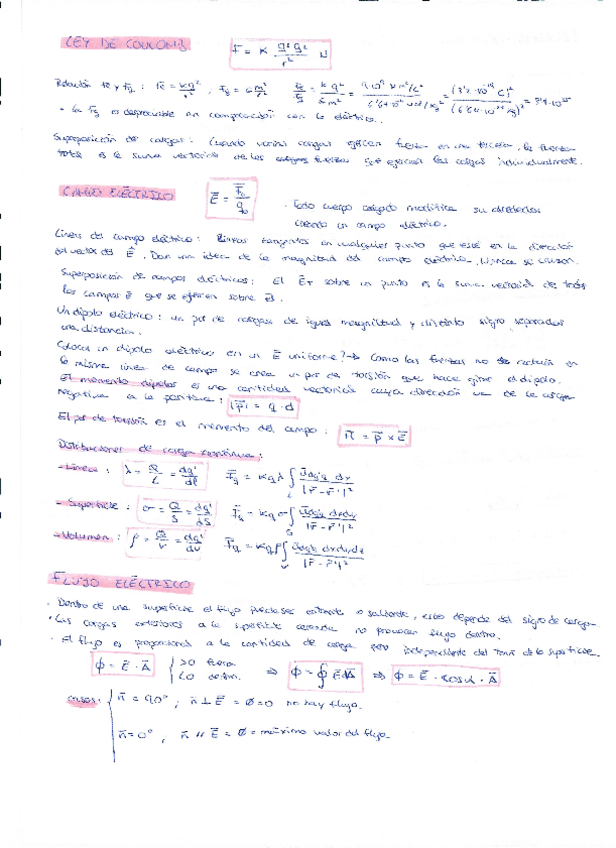 LEY DE COULOMB F = K q² q² / r² N
Relación Fe y Fg : Fe = Kq² / r² ; Fg = G m² / r² Fe / Fg = K q² / G m² =
- La Fg es despreciable en comparación con la eléctrica.
Superposición de cargas : Cuando varias cargas ejercen fuerza en una tercera, la fuerza
total es la suma vectorial de las cargas fuerzas que ejercen las cargas individualmente.
CAMPO ELÉCTRICO E = F₀ / q₀ · Todo cuerpo cargado modifica su alrededor
creando un campo eléctrico.
Líneas del campo eléctrico : Líneas tangentes en cualquier punto que esté en la dirección
del vector del E. Dan una idea de la magnitud del campo eléctrico. Nunca se cruzan.
Superposición de campos eléctricos : El ET sobre un punto es la suma vectorial de todos
los campos E que se ejercen sobre él.
Un dipolo eléctrico : un par de cargas de igual magnitud y distinto signo separados
una distancia.
Colocar un dipolo eléctrico en un E uniforme? → Como las fuerzas no se cancelan en
la misma línea de campo se crea un par de torsión que hace girar el dipolo.
El momento dipolar es una cantidad vectorial cuya dirección va de la carga
negativa a la positiva : |p| = q · d
El par de torsión es el momento del campo : M = p × E
Distribuciones de carga continua :
- Lineal : λ = Q / L = dq' / dl
- Superficie : σ = Q / S = dq' / dS
- Volumen : ρ = Q / V = dq' / dV
FLUJO ELÉCTRICO
· Dentro de una superficie el flujo puede ser entrante o saliente, esto depende del signo de carga.
· Las cargas exteriores a la superficie cerrada no provocan flujo dentro.
· El flujo es proporcional a la cantidad de carga pero independiente del tamaño de la superficie.
ϕ = E · A { >0 fuera. <0 dentro. ⇒ ϕ = ∮ E dA ⇒ ϕ = E · cos α · A
casos : n = 90° ; n ⊥ E = ϕ = 0 no hay flujo.
n = 0° , n // E = ϕ = máximo valor del flujo.